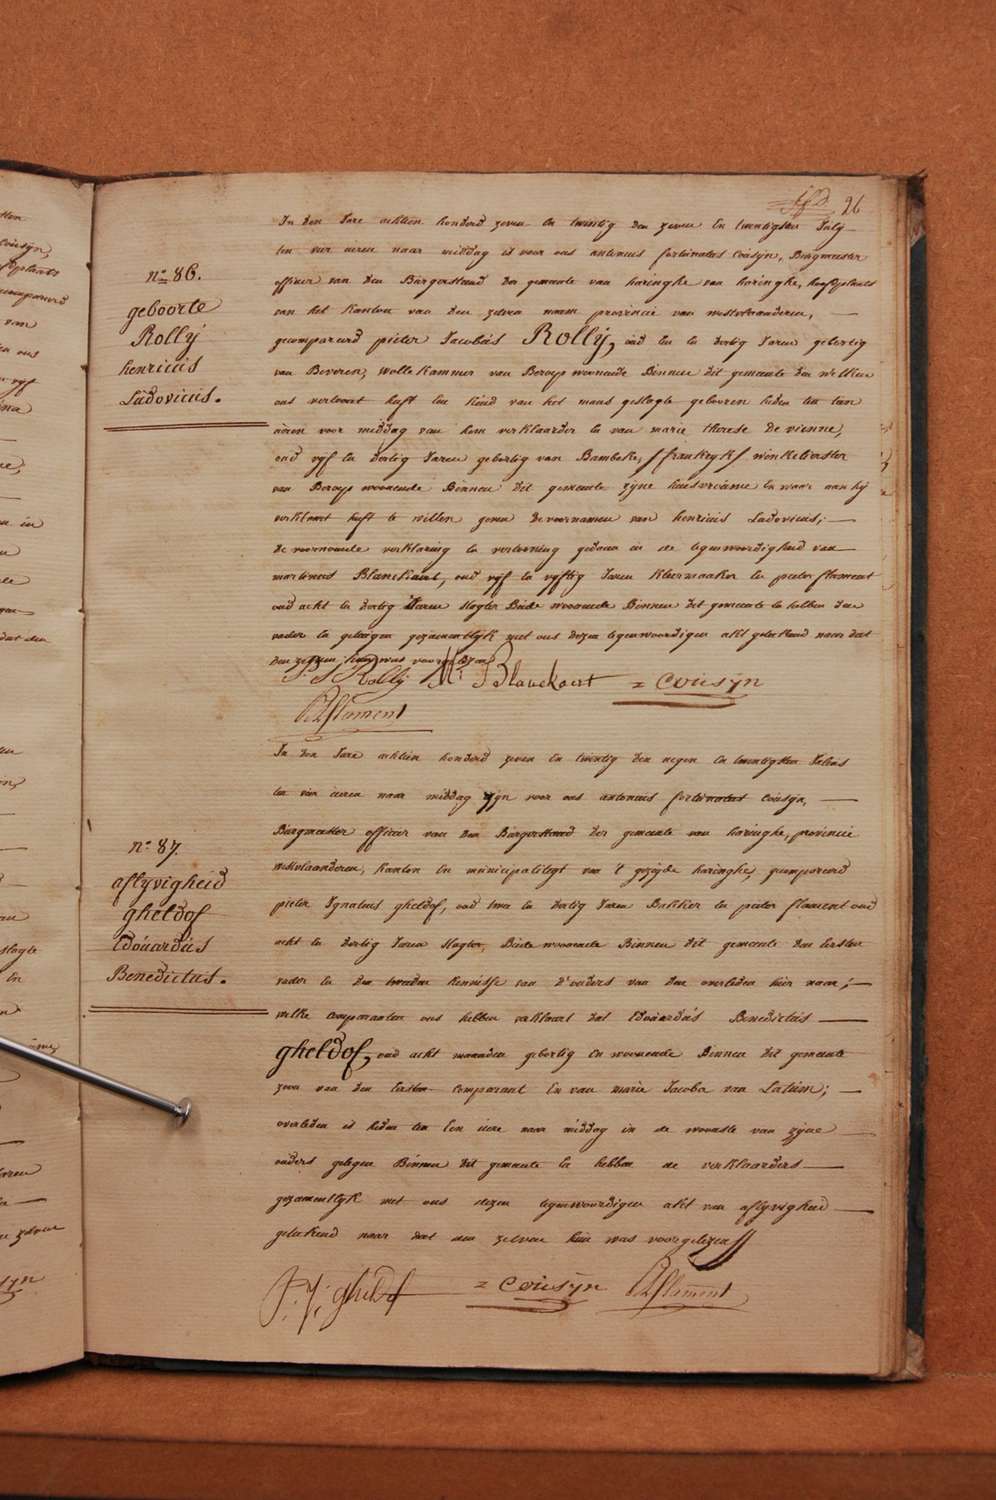 26
n.° 86.
geboorte
Rollÿ
henricus
Ludovicus.
In den Jare achtien honderd zeven En twintig den zeven En twintigsten Julÿ
ten vier uren naar middag is voor ons antonius fortunatus Cousÿn, Burgmeester
officier van den Burgerstand der gemeente van haringhe van haringhe, hoofdplaats
van het kanton van den zelven naam provincie van westvlaanderen,
gecompareerd pieter Jacobus Rollÿ, oud En En dertig Jaren gebortig
van Beveren, wolle kammer van Beroep woonende Binnen dit gemeente den welken
ons verklaart heeft Een kind van het mans geslagte gebooren heden ten tien
uren voor middag van hem verklaarder En van marie therese De vienne,
oud vyf En dertig Jaren gebortig van Bambeke, (frankryk) winkeliester
van Beroep woonende Binnen dit gemeente zyne huisvrouwe En waar aan hy
verklaart heeft te willen geven de voornamen van henricus Ludovicus;
de voornoemde verklaring En vertooning gedaan in de tegenwoordigheid van
martinus Blanckaert, oud vyf En vyftig Jaren kleermaaker En pieter flament
oud acht En dertig Jaren slagter Beide woonende Binnen dit gemeente En hebben den
vader En getuigen gezamentlyk met ons dezen tegenwoordigen akt geteekend naar dat
den zelven hun was voorgelezen
P. J. Rollÿ M. J. Blanckaert = Cousÿn
P. flament
n.° 87.
aflyvigheid
gheldof
Edouardus
Benedictus.
In den Jare achtien honderd zeven En twintig den negen En twintigsten Julius
ten vier uren naar middag zyn voor ons antonius fortunatus Cousÿn,
Burgmeester officier van den Burgerstand der gemeente van haringhe, provincie
westvlaanderen, kanton En municipaliteyt van 't gezeÿde haringhe, gecompareerd
pieter Ignatius gheldof, oud twee En dertig Jaren Bakker En pieter flament oud
acht En dertig Jaren slagter, Beide woonende Binnen dit gemeente den Eersten
vader En den tweeden kennisse van d'ouders van den overleden hier naar;
welke comparanten ons hebben verklaart dat Edouardus Benedictus
gheldof, oud acht maanden gebortig En woonende Binnen dit gemeente
zoon van den Eersten comparant En van marie Jacoba van Latum;
overleden is heden ten Een uure naar middag in de woonste van zyne
ouders gelegen Binnen dit gemeente En hebben de verklaarders
gezamentlyk met ons dezen tegenwoordigen akt van aflyvigheid
geteekend naar dat den zelven hun was voorgelezen
P. J. gheldof = Cousÿn P. flament